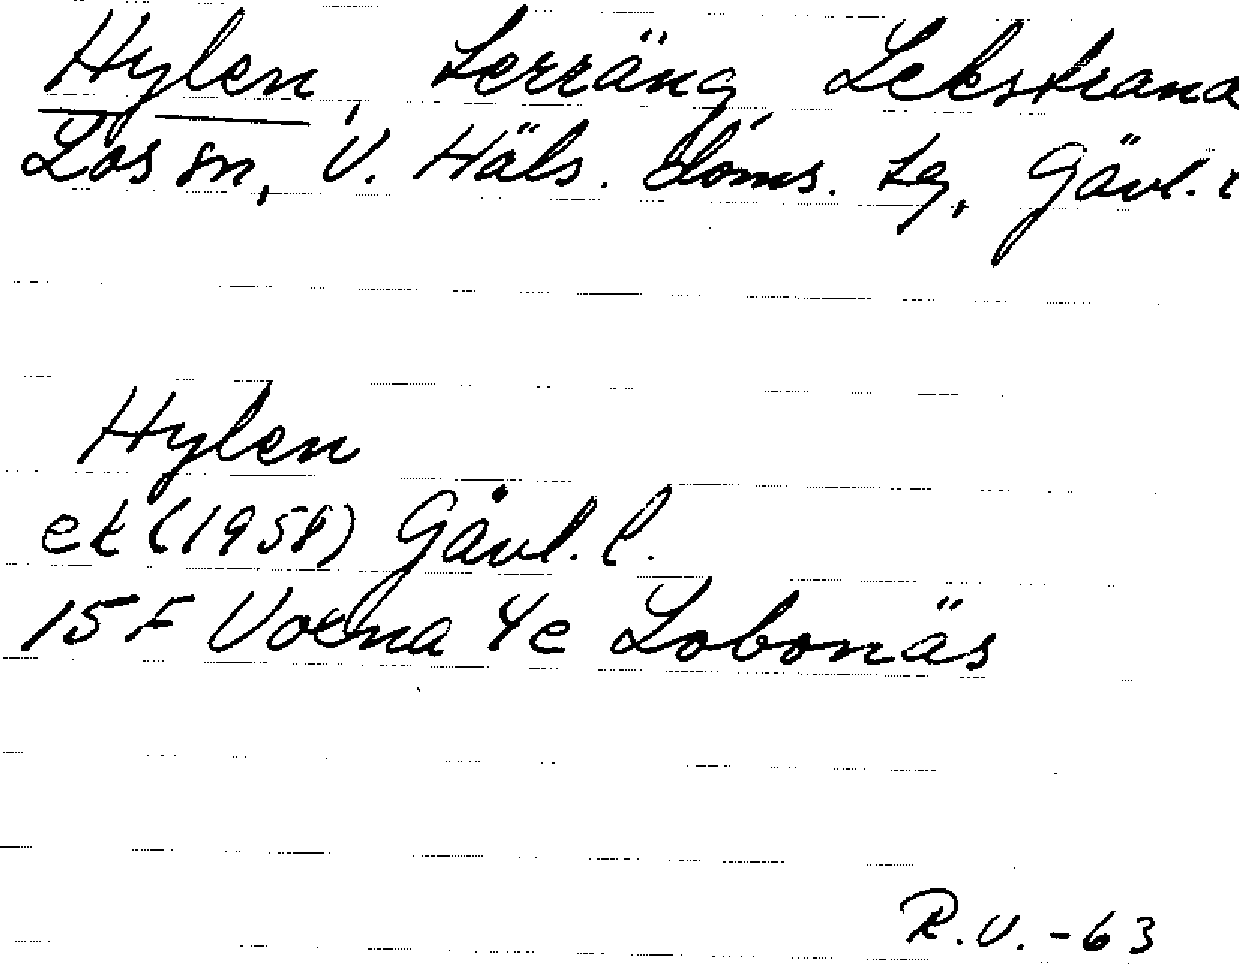 Hylen, terräng, Lekstrana
Los sn, V. Häls. doms. tg, Gävl. l
Hylen
ek (1958) Gävl. l.
15F Voxna 4e Lobonäs
R.V. -63